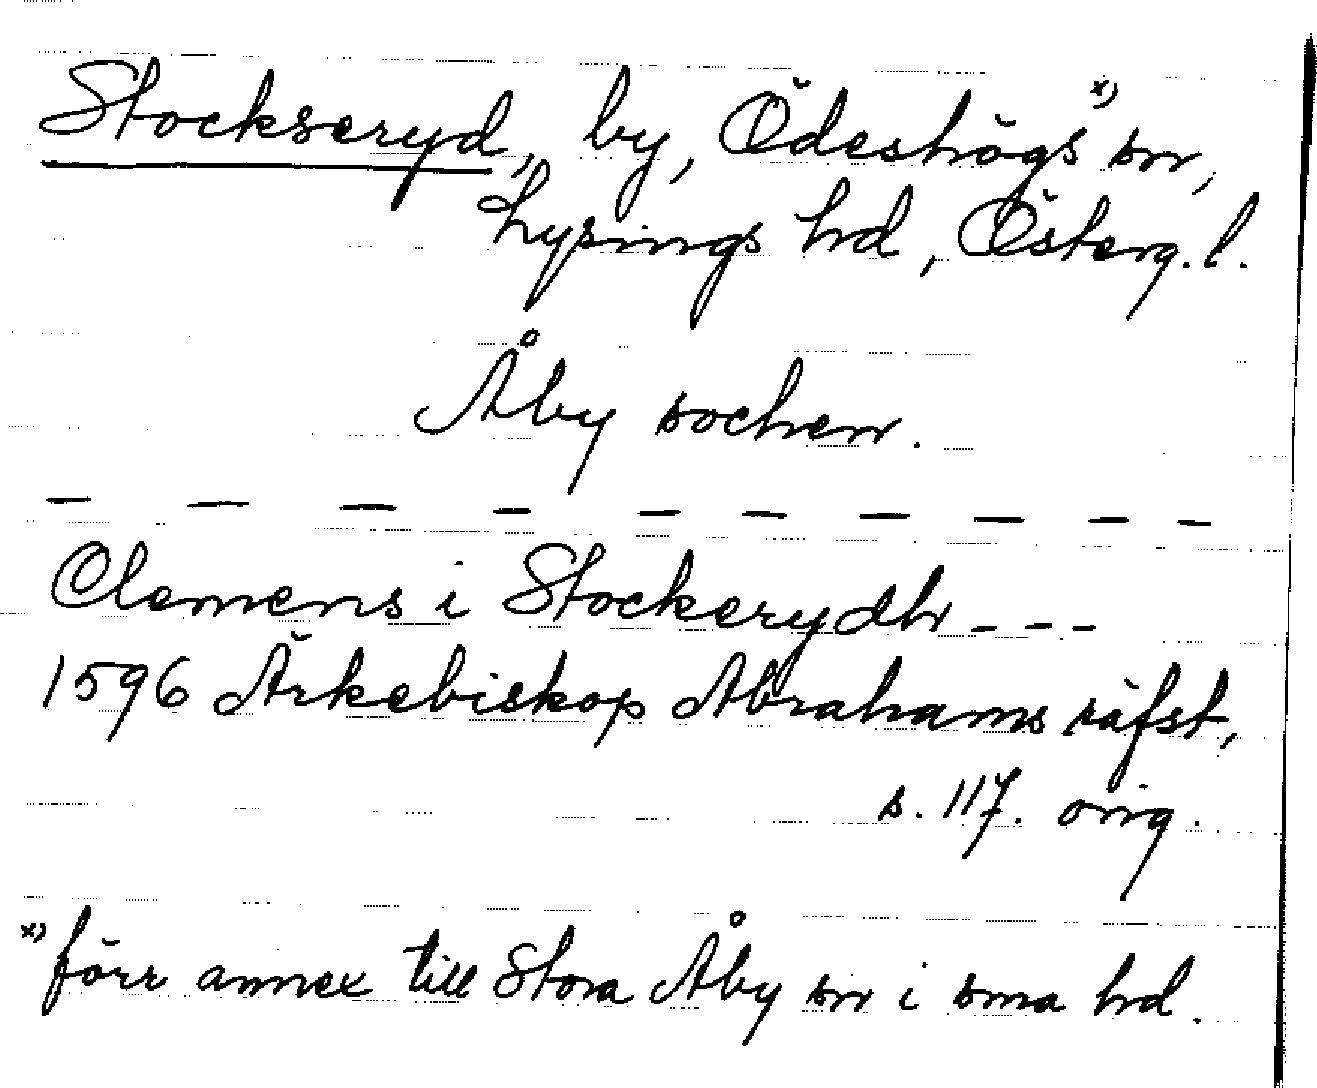 Stockseryd, by, Ödeshögs x) sn,
Lysings hd, Österg. l.
Åby sochen.
— — — — — — — — — —
Clemens i Stockerydh - - -
1596 Ärkebiskop Abrahams räfst,
s. 117. orig.
x) förr annex till Stora Åby sn i sma hd.